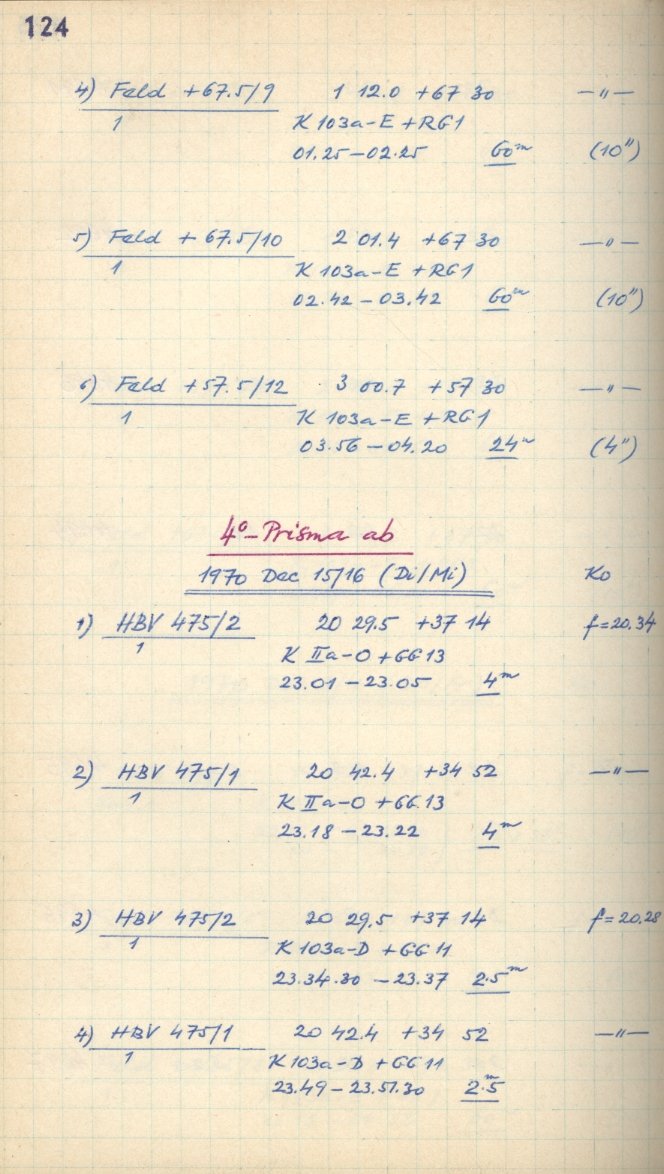 124
4) Feld +67.5/9 1 12.0 +67 30 —"—
1 K 103a-E + RG1
01.25 – 02.25 60m (10")
5) Feld +67.5/10 2 01.4 +67 30 —"—
1 K 103a-E + RG1
02.42 – 03.42 60m (10")
6) Feld +57.5/12 3 00.7 +57 30 —"—
1 K 103a-E + RG1
03.56 – 04.20 24m (4")
4°-Prisma ab
1970 Dec 15/16 (Di/Mi) Ko
1) HBV 475/2 20 29.5 +37 14 f=20.34
1 K IIa-O + GG13
23.01 – 23.05 4m
2) HBV 475/1 20 42.4 +34 52 —"—
1 K IIa-O + GG.13
23.18 – 23.22 4m
3) HBV 475/2 20 29.5 +37 14 f=20.28
1 K 103a-D + GG11
23.34.30 – 23.37 2.5m
4) HBV 475/1 20 42.4 +34 52 —"—
1 K 103a-D + GG11
23.49 – 23.51.30 2.m5